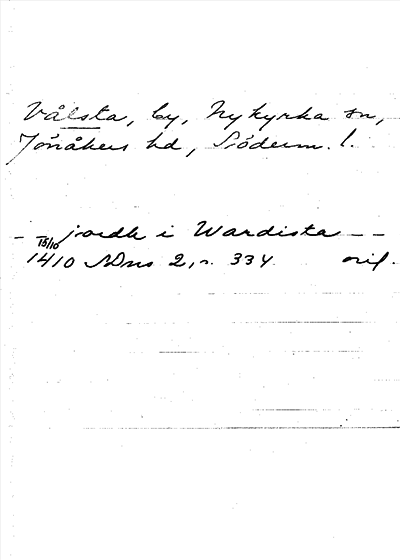 Vålsta, by, Nykyrka sn,
Jönåkers hd, Söderm. l.
- jordh i Wardista - -
15/10
1410 SDns 2, n. 334. orig.